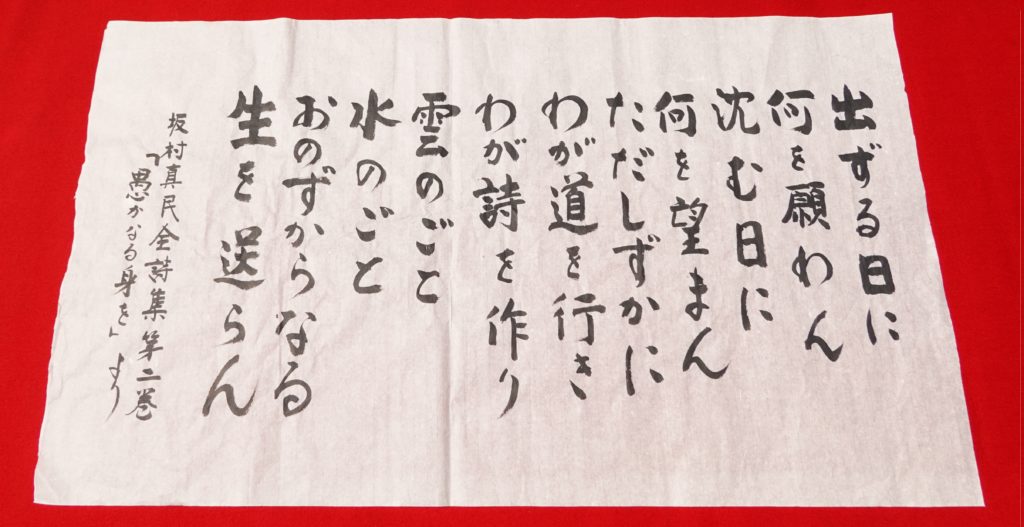 出ずる日に
何を願わん
沈む日に
何を望まん
ただしずかに
わが道を行き
わが詩を作り
雲のごと
水のごと
おのずからなる
生を送らん
坂村真民全詩集第二巻
「愚かなる身を」より